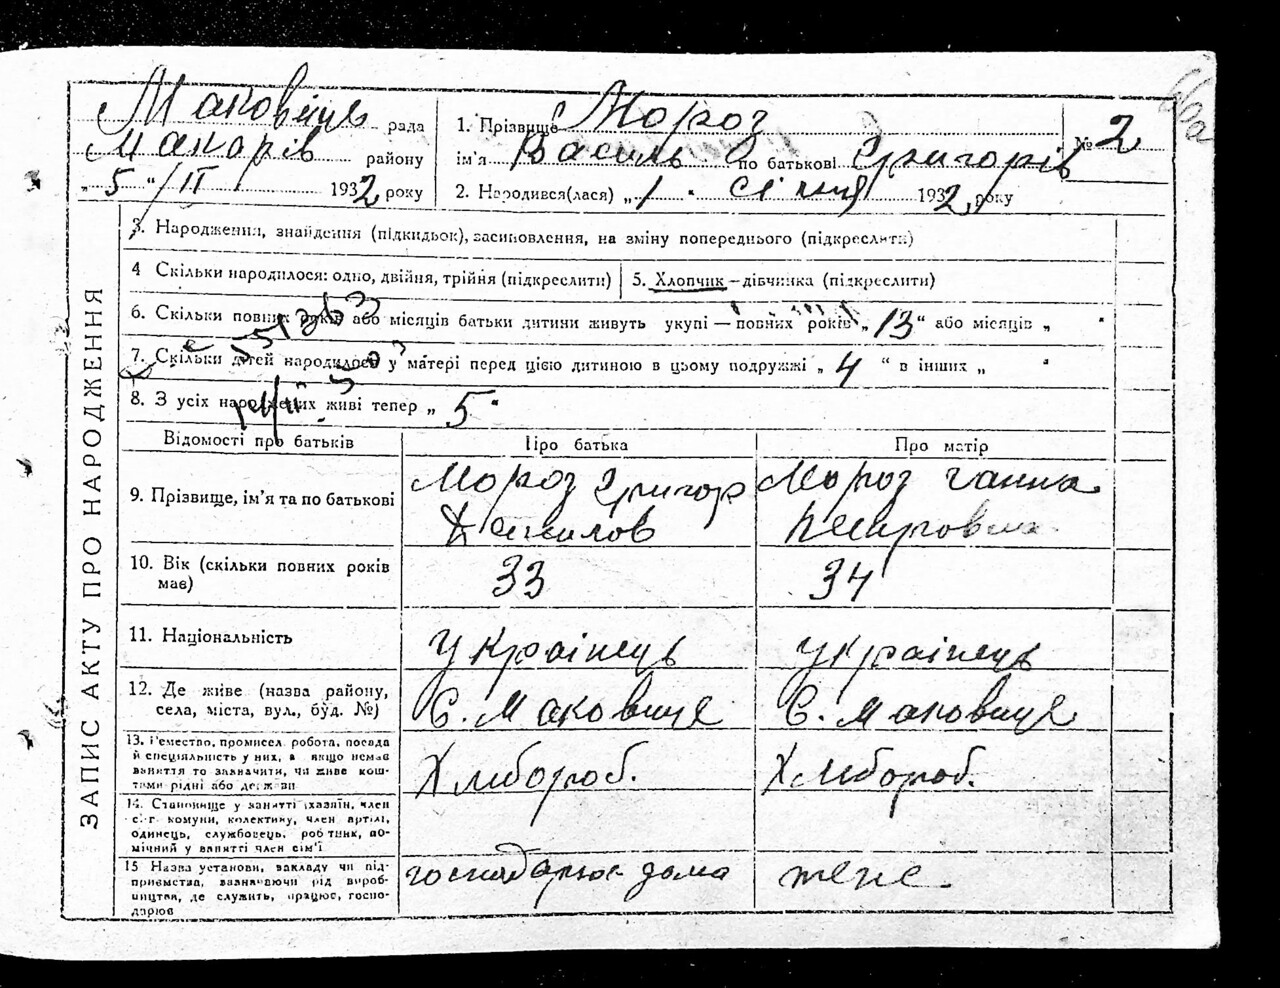 66а
Маковище рада
Макарів району
„5“/II 1932 року
1. Прізвище Мороз
ім'я Василь по батькові Григорів
№ 2
2. Народився(лася) „1“ січня 1932 року
ЗАПИС АКТУ ПРО НАРОДЖЕННЯ
3. Народження, знайдення (підкидьок), засиновлення, на зміну попереднього (підкреслити)
4 Скільки народилося: одно, двійня, трійня (підкреслити)
5. Хлопчик – дівчинка (підкреслити)
6. Скільки повних років або місяців батьки дитини живуть укупі — повних років „13“ або місяців „ “
7. Скільки дітей народилося у матері перед цією дитиною в цьому подружжі „4“ в інших „ “
8. З усіх народжених живі тепер „5“
Відомості про батьків
Про батька
Про матір
9. Прізвище, ім'я та по батькові
Мороз Григор
Мороз Ганна
10. Вік (скільки повних років
має)
33
34
11. Національність
Українець
українець
12. Де живе (назва району,
села, міста, вул., буд. №)
С. Маковище
С. Маковище
13. Ремество, промисел, робота, посада
й спеціяльність у них, а якщо немає
заняття то зазначити, чи живе кош-
тами рідні або держави
Хлібороб.
Хлібороб.
14. Становище у занятті (хазяїн, член
с.-г. комуни, колективу, член артілі,
одинець, службовець, робітник, по-
мічний у занятті член сім'ї
15 Назва установи, закладу чи під-
приємства, зазначаючи рід вироб-
ництва, де служить, працює, госпо-
дарює
господарює дома
теж.